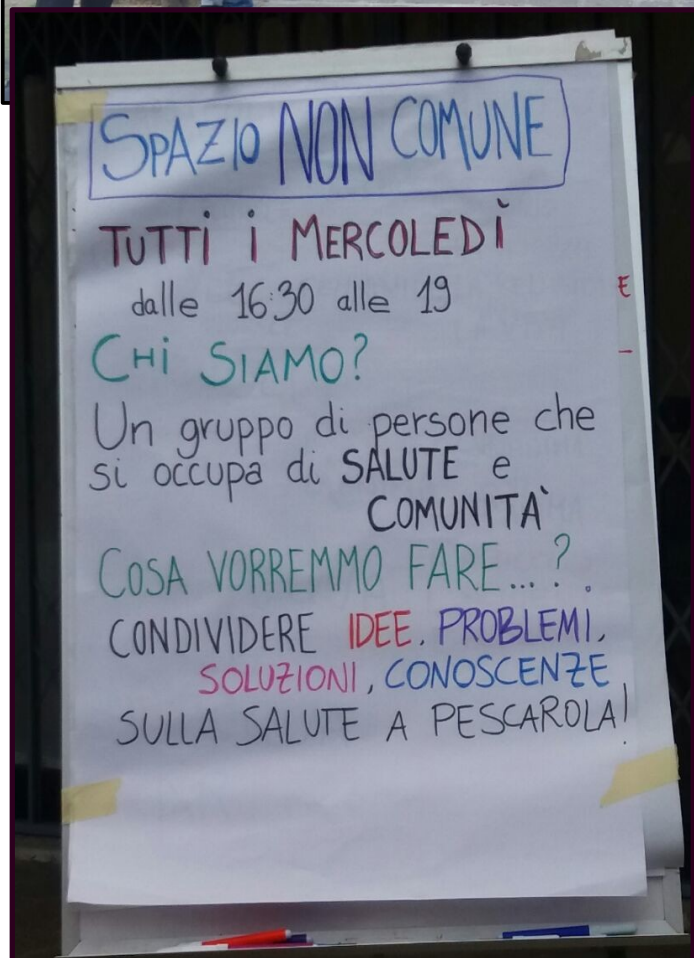 SPAZIO NON COMUNE
TUTTI I MERCOLEDÌ
dalle 16:30 alle 19
CHI SIAMO?
Un gruppo di persone che
si occupa di SALUTE e
COMUNITÀ
COSA VORREMMO FARE...?
CONDIVIDERE IDEE, PROBLEMI,
SOLUZIONI, CONOSCENZE
SULLA SALUTE A PESCAROLA!
E